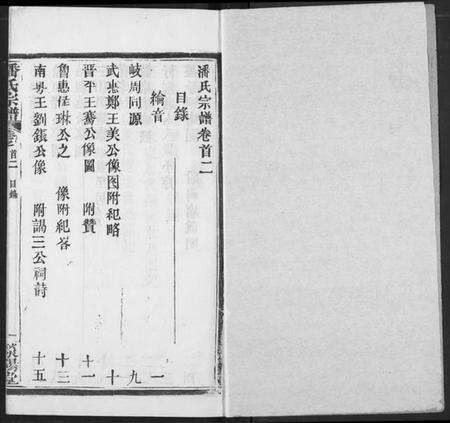 潘氏宗譜卷首二
目錄
綸音 一
岐周同源 九
武惠鄭王美公像图附紀略 十
晋平王騫公像圖 附贊 十一
魯惠 琳公之 像附紀畧 十三
南粤王劉鋹公像 附謁三公祠詩 十五
潘氏宗譜 卷之首二 目錄 一 陽堂